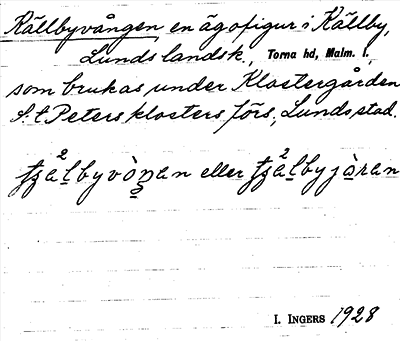 Källbyvången en ägofigur i Källby,
Lunds landsk., Torna hd, Malm. l.,
som brukas under Klostergården
S:t Peters klosters förs., Lunds stad.
eller
I. INGERS 1928